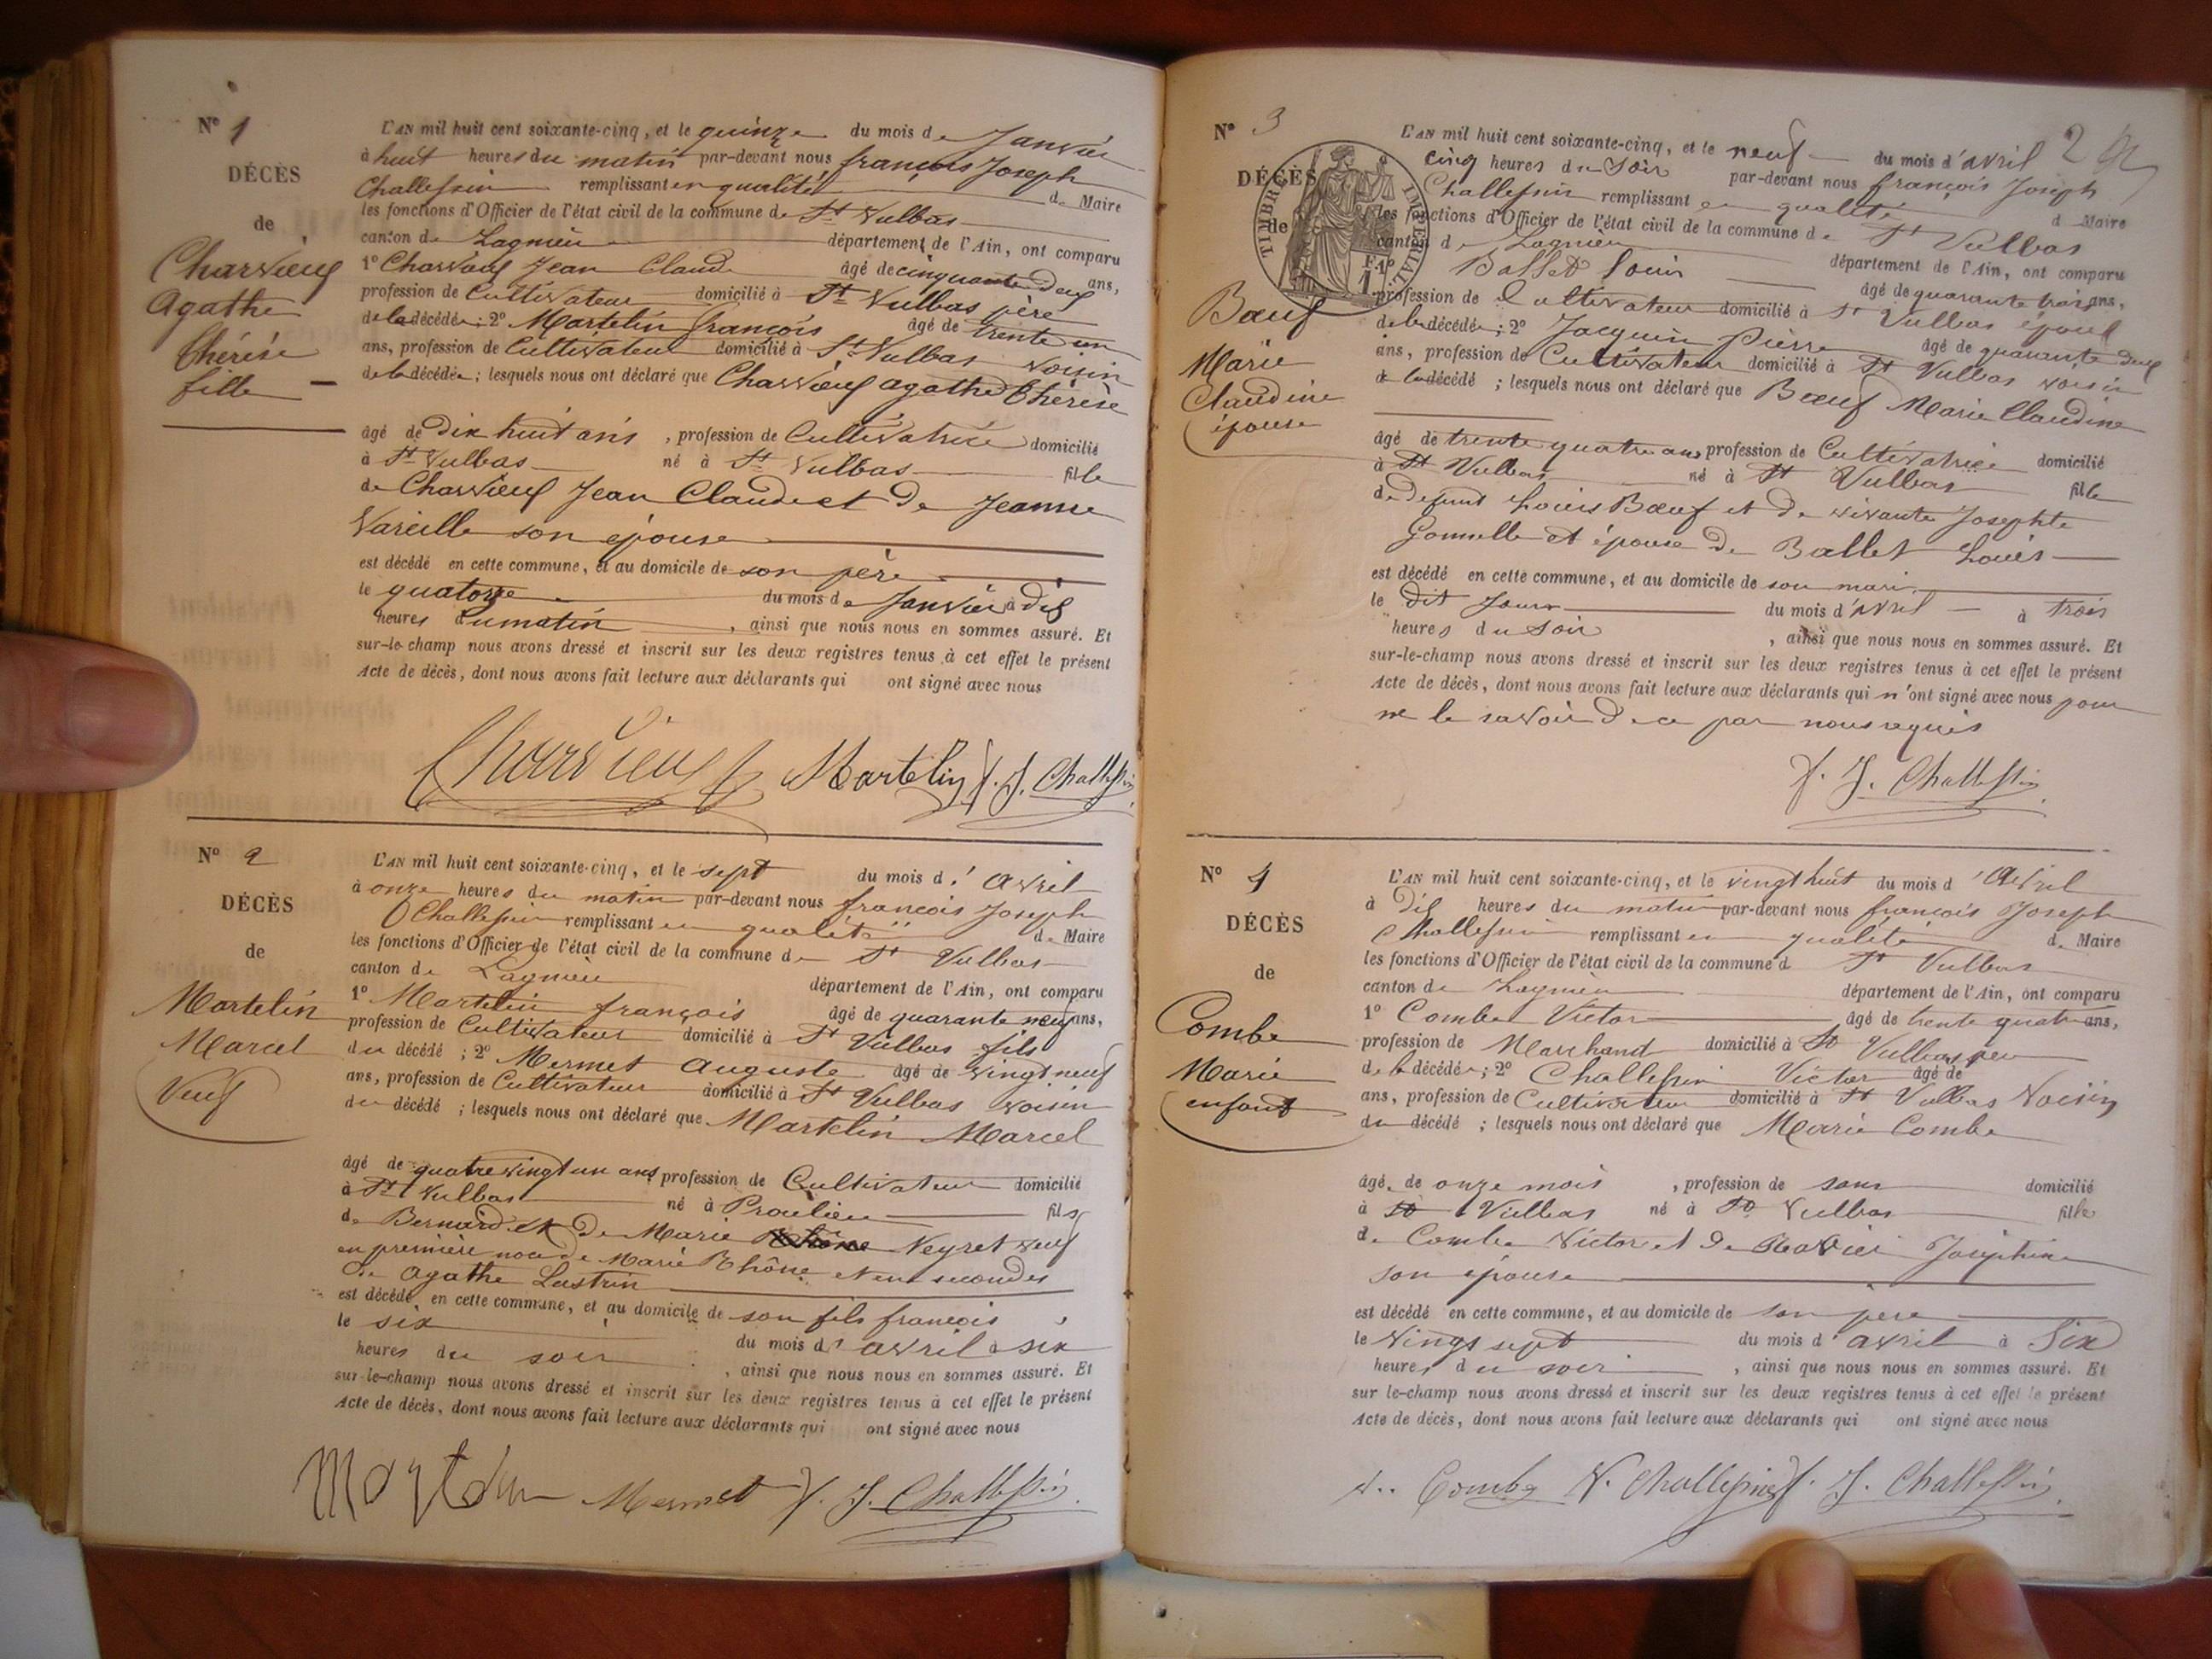 N° 1
DÉCÈS
de
Charvieux
Agathe
Thérèse
fille
L'AN mil huit cent soixante-cinq, et le quinze du mois de Janvier
à huit heures du matin par-devant nous françois Joseph
Challessin remplissant en qualité de Maire
les fonctions d'Officier de l'état civil de la commune de St Vulbas
canton de Lagnieu département de l'Ain, ont comparu
1° Charvieux Jean Claude âgé de cinquante deux ans,
profession de Cultivateur domicilié à St Vulbas père
de la décédée; 2° Martelin françois âgé de trente un
ans, profession de Cultivateur domicilié à St Vulbas voisin
de la décédée; lesquels nous ont déclaré que Charvieux agathe Thérèse
âgé de dix huit ans, profession de Cultivatrice domicilié
à St Vulbas né à St Vulbas fille
de Charvieux Jean Claude et de Jeanne
Vareille son épouse
est décédé en cette commune, et au domicile de son père
le quatorze du mois de Janvier à dix
heures du matin, ainsi que nous nous en sommes assuré. Et
sur-le-champ nous avons dressé et inscrit sur les deux registres tenus à cet effet le présent
Acte de décès, dont nous avons fait lecture aux déclarants qui ont signé avec nous
Charvieux Martelin f. J. Challessin
N° 2
DÉCÈS
de
Martelin
Marcel
Veuf
L'AN mil huit cent soixante-cinq, et le sept du mois d'avril
à onze heures du matin par-devant nous françois Joseph
Challessin remplissant en qualité de Maire
les fonctions d'Officier de l'état civil de la commune de St Vulbas
canton de Lagnieu département de l'Ain, ont comparu
1° Martelin françois âgé de quarante neuf ans,
profession de Cultivateur domicilié à St Vulbas fils
du décédé; 2° Mermet Auguste âgé de vingt neuf
ans, profession de Cultivateur domicilié à St Vulbas voisin
du décédé; lesquels nous ont déclaré que Martelin Marcel
âgé de quatre vingt un ans profession de Cultivateur domicilié
à St Vulbas né à Proulieu fils
de Bernard et de Marie Neyret veuf
en première noce de Marie Rhône et en secondes
de Agathe Lustrin
est décédé en cette commune, et au domicile de son fils françois
le six du mois d'avril à six
heures du soir, ainsi que nous nous en sommes assuré. Et
sur-le-champ nous avons dressé et inscrit sur les deux registres tenus à cet effet le présent
Acte de décès, dont nous avons fait lecture aux déclarants qui ont signé avec nous
Martelin Mermet f. J. Challessin
2
N° 3
DÉCÈS
de
TIMBRE IMPÉRIAL
Bœuf
Marie
Claudine
épouse
L'AN mil huit cent soixante-cinq, et le neuf du mois d'avril
cinq heures du soir par-devant nous françois Joseph
Challessin remplissant en qualité d Maire
les fonctions d'Officier de l'état civil de la commune de St Vulbas
canton de Lagnieu département de l'Ain, ont comparu
1° Ballet Louis âgé de quarante trois ans,
profession de Cultivateur domicilié à St Vulbas époux
de la décédée; 2° Jacquin Pierre âgé de quarante deux
ans, profession de Cultivateur domicilié à St Vulbas voisin
de la décédé; lesquels nous ont déclaré que Bœuf Marie Claudine
âgé de trente quatre ans profession de Cultivatrice domicilié
à St Vulbas né à St Vulbas fille
de défunt Louis Bœuf et de vivante Josephte
et épouse de Ballet Louis
est décédé en cette commune, et au domicile de son mari
le dit jour du mois d'avril à trois
heures du soir, ainsi que nous nous en sommes assuré. Et
sur-le-champ nous avons dressé et inscrit sur les deux registres tenus à cet effet le présent
Acte de décès, dont nous avons fait lecture aux déclarants qui n'ont signé avec nous pour
ne le savoir de ce par nous requis
f. J. Challessin
N° 4
DÉCÈS
de
Combe
Marie
enfant
L'AN mil huit cent soixante-cinq, et le vingt huit du mois d'Avril
à dix heures du matin par-devant nous françois Joseph
Challessin remplissant en qualité de Maire
les fonctions d'Officier de l'état civil de la commune d St Vulbas
canton de Lagnieu département de l'Ain, ont comparu
1° Combe Victor âgé de trente quatre ans,
profession de Marchand domicilié à St Vulbas père
de la décédée; 2° Challessin Victor âgé de
ans, profession de Cultivateur domicilié à St Vulbas Voisin
du décédé; lesquels nous ont déclaré que Marie Combe
âgé de onze mois, profession de sans domicilié
à St Vulbas né à St Vulbas fille
de Combe Victor et de Joséphine
son épouse
est décédé en cette commune, et au domicile de son père
le vingt sept du mois d'avril à Six
heures du soir, ainsi que nous nous en sommes assuré. Et
sur le-champ nous avons dressé et inscrit sur les deux registres tenus à cet effet le présent
Acte de décès, dont nous avons fait lecture aux déclarants qui ont signé avec nous
Combe V. Challessin f. J. Challessin